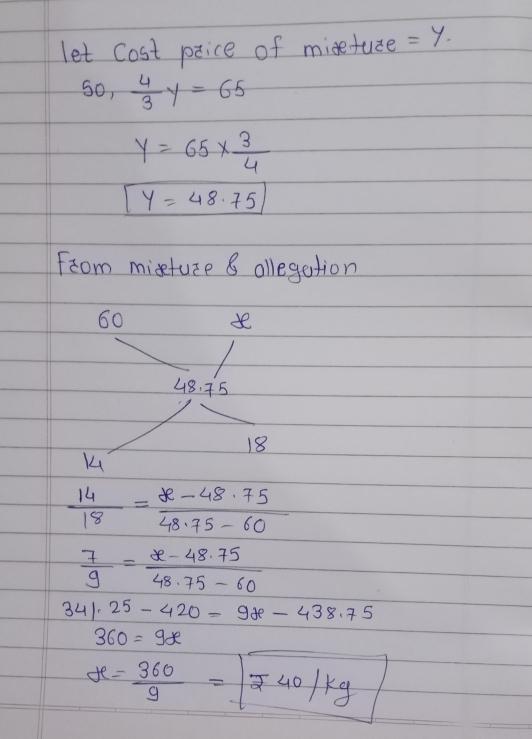 let Cost price of mixture = Y.
So, 4/3 Y = 65
Y = 65 x 3/4
Y = 48.75
From mixture & allegation
60 x
48.75
14 18
14/18 = x - 48.75 / 48.75 - 60
7/9 = x - 48.75 / 48.75 - 60
341.25 - 420 = 9x - 438.75
360 = 9x
x = 360/9 = ₹ 40/kg